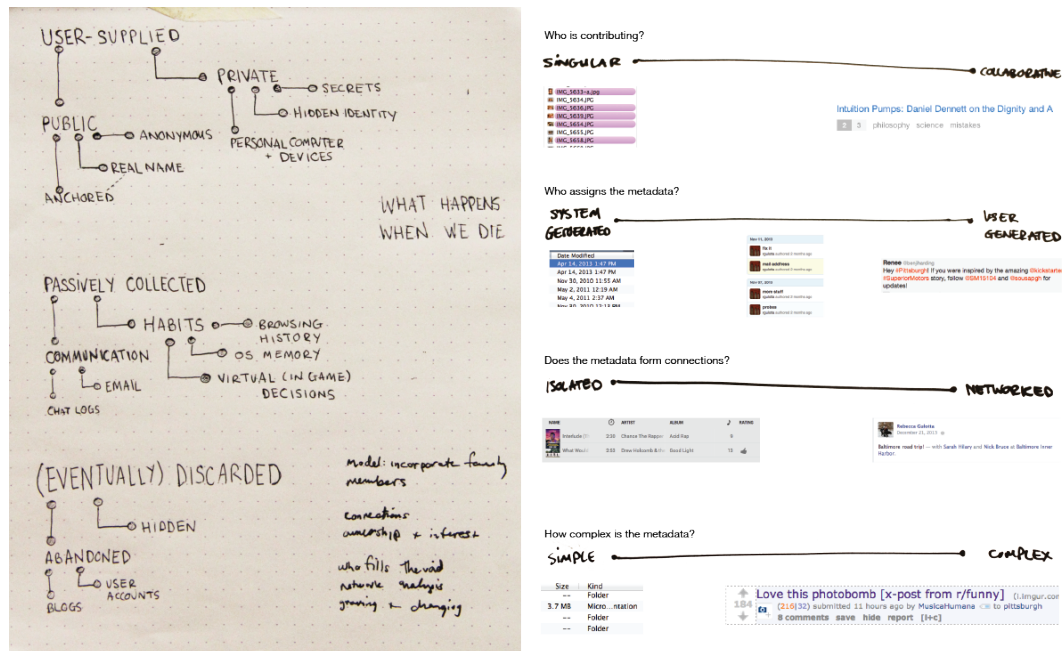 USER-SUPPLIED
PRIVATE
SECRETS
HIDDEN IDENTITY
PERSONAL COMPUTER
+ DEVICES
PUBLIC
ANONYMOUS
REAL NAME
ANCHORED
WHAT HAPPENS
WHEN WE DIE
PASSIVELY COLLECTED
HABITS
BROWSING
HISTORY
OS MEMORY
VIRTUAL (IN GAME)
DECISIONS
COMMUNICATION
EMAIL
CHAT LOGS
(EVENTUALLY) DISCARDED
HIDDEN
ABANDONED
USER
ACCOUNTS
BLOGS
Model: incorporate family
members
connections
ownership + interest
who fills the void
network analysis
growing + changing
Who is contributing?
SINGULAR
COLLABORATIVE
IMG_5633-a.jpg
IMG_5634.JPG
IMG_5636.JPG
IMG_5639.JPG
IMG_5654.JPG
IMG_5655.JPG
IMG_5658.JPG
Intuition Pumps: Daniel Dennett on the Dignity and A
2 3 philosophy science mistakes
Who assigns the metadata?
SYSTEM
GENERATED
USER
GENERATED
Date Modified
Apr 14, 2013 1:47 PM
Apr 14, 2013 1:47 PM
Nov 30, 2010 11:55 AM
May 2, 2011 12:19 AM
May 4, 2011 2:37 AM
Nov 30, 2010 12:13 PM
Nov 11, 2013
fix it
authored 2 months ago
mail address
authored 2 months ago
Nov 07, 2013
more stuff
authored 2 months ago
authored 2 months ago
Renee
Hey #Pittsburgh! If you were inspired by the amazing @kickstarte
#SuperiorMotors story, follow @BM15104 and @sousapgh for
updates!
Does the metadata form connections?
ISOLATED
NETWORKED
NAME ARTIST ALBUM RATING
Interlude 2:30 Chance The Rapper Acid Rap
What Would 3:53 Drew Holcomb & Good Light
Rebecca Gulotta
December 21, 2013
Baltimore road trip! — with Sarah Hilary and Nick Bruce at Baltimore Inner
Harbor.
How complex is the metadata?
SIMPLE
COMPLEX
Size Kind
-- Folder
3.7 MB Micro...ntation
-- Folder
-- Folder
Love this photobomb [x-post from r/funny] (i.imgur.com
184 (216|32) submitted 11 hours ago by MusicaHumana to pittsburgh
8 comments save hide report [l+c]